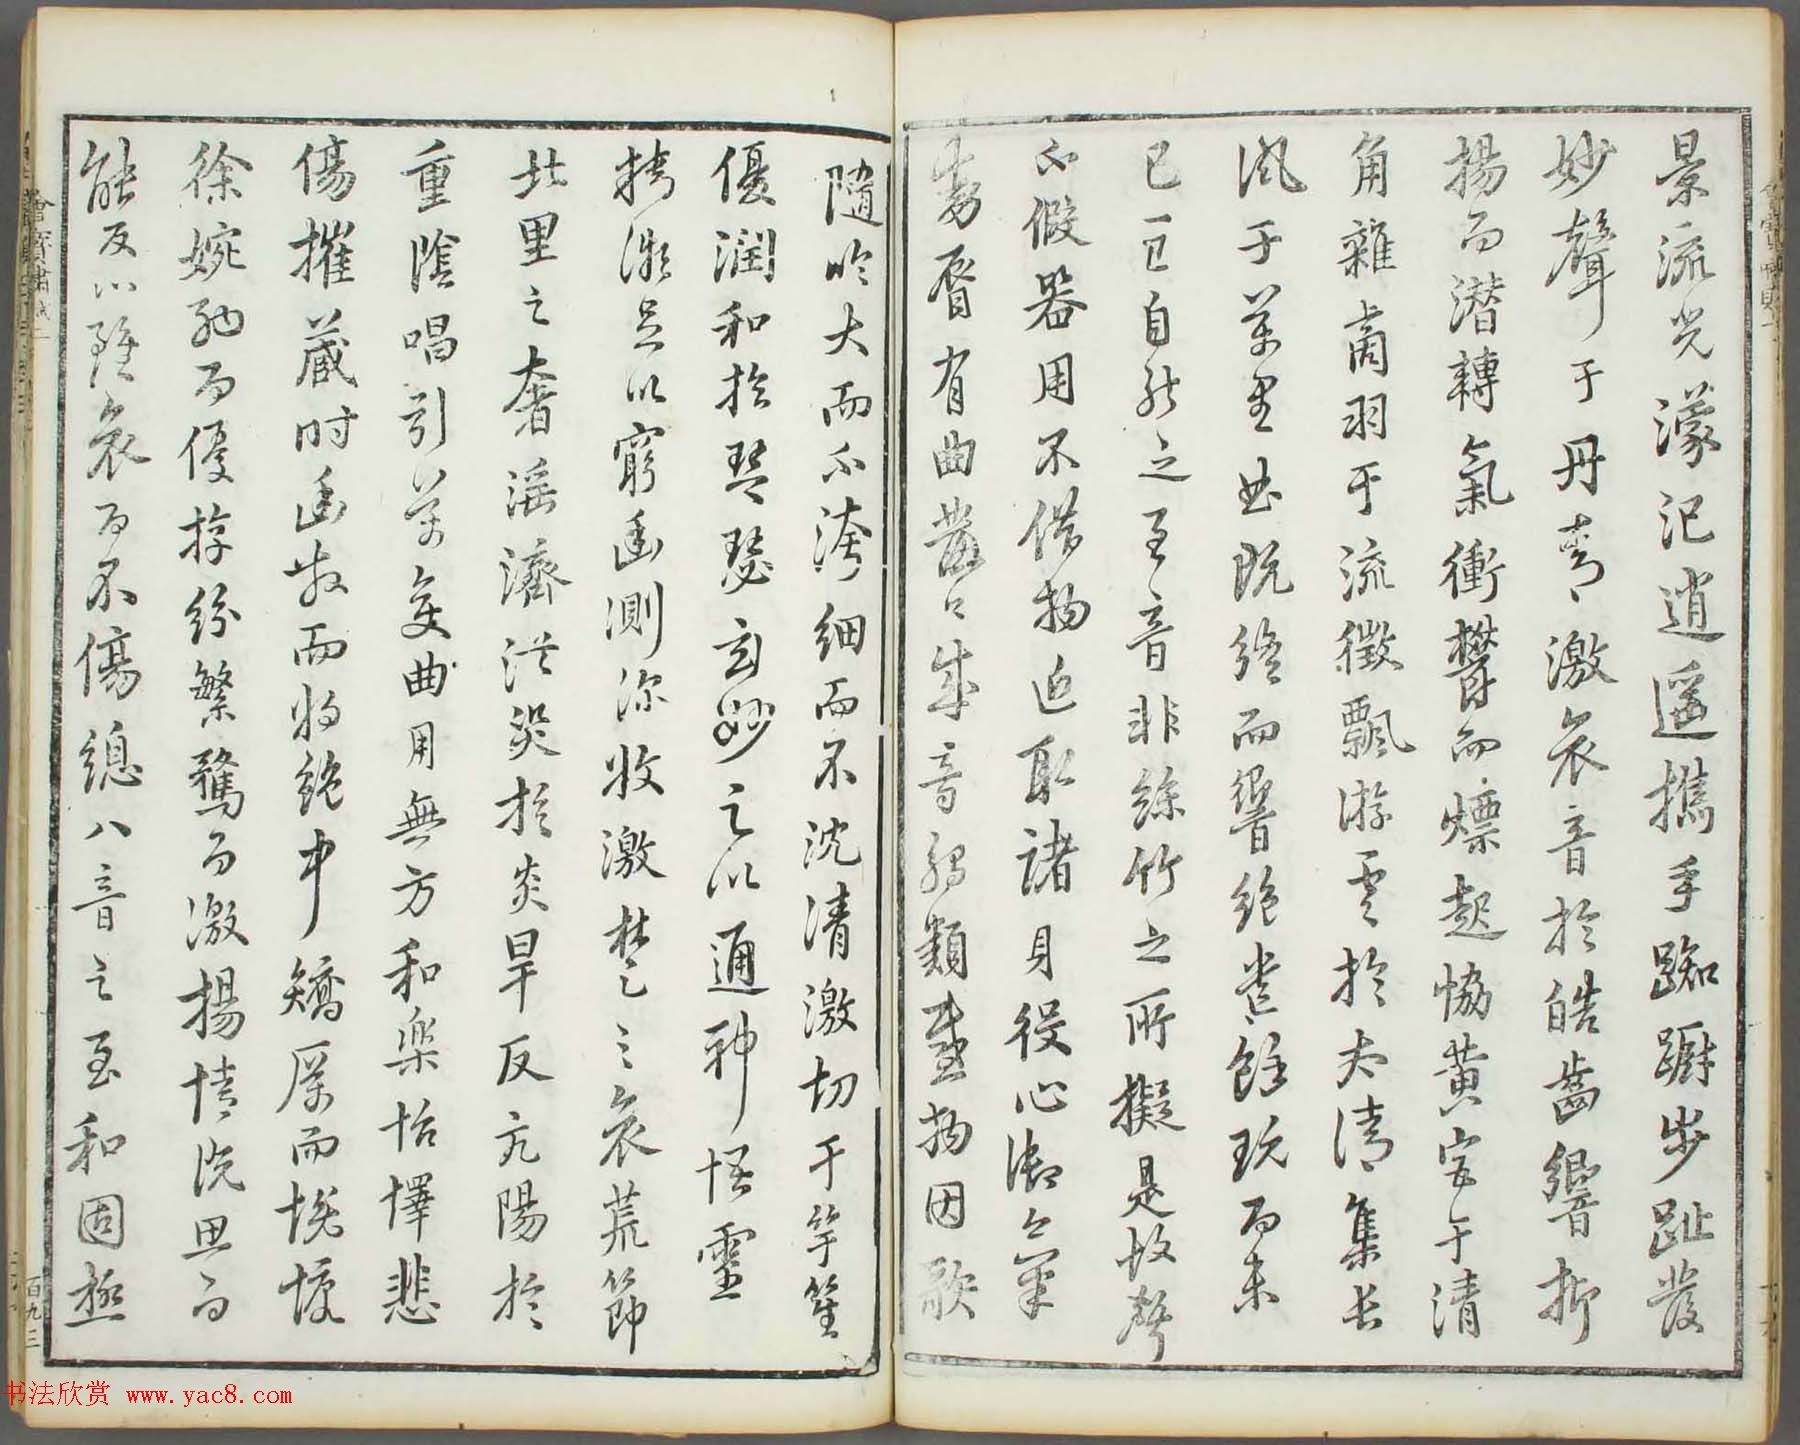 景流光濛汜逍遥攜手踟躕步趾發
妙聲于丹脣激哀音於皓齒響抑
揚而潜轉氣衝鬱而熛起協黄宫于清
角雜商羽于流徵飄游雲於太清集長
風于萬里曲既終而響絶遺餘玩而未
已亮自然之至音非絲竹之所擬是故聲
不假器用不借物近取諸身役心御氣
動脣有曲發口成音觸類感物因歌
隨吟大而不洿細而不沈清激切于竽笙
優潤和於琴瑟玄妙之以通神悟靈
精微足以窮幽測深收激楚之哀荒節
北里之奢淫濟洪災於炎旱反亢陽於
重陰唱引萬變曲用無方和樂怡懌悲
傷摧藏時幽散而將絶中矯厲而慨慷
徐婉約而優游紛繁騖而激揚情既思而
能反心雖哀而不傷總八音之至和固極
百九三
书法欣赏 www.yac8.com